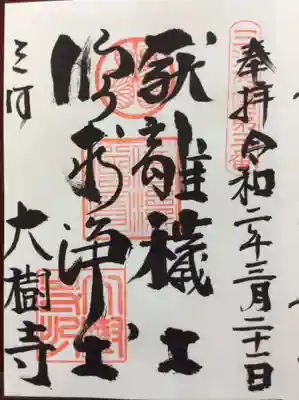 奉拝 令和二年三月二十一日
厭離穢土
欣求浄土
三河
大樹寺